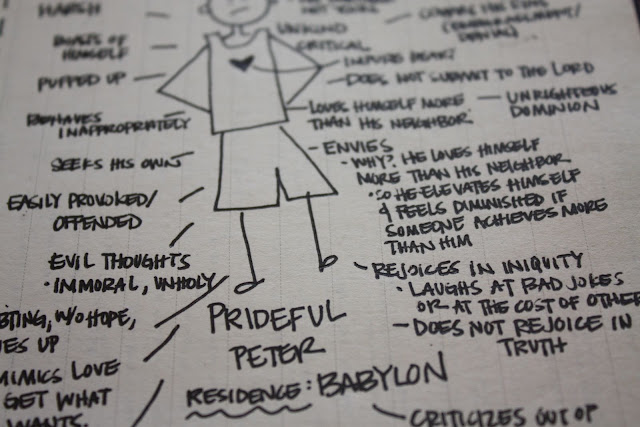 HARSH
BOASTS OF
HIMSELF
PUFFED UP
BEHAVES
INAPPROPRIATELY
SEEKS HIS OWN
EASILY PROVOKED/
OFFENDED
EVIL THOUGHTS
• IMMORAL, UNHOLY
BTING, W/O HOPE,
ES UP
MIMICS LOVE
GET WHAT
WANTS.
UNKIND
CRITICAL
IMPURE HEART
DOES NOT SUBMIT TO THE LORD
LOVES HIMSELF MORE
THAN HIS NEIGHBOR.
UNRIGHTEOUS
DOMINION
ENVIES
• WHY? HE LOVES HIMSELF
MORE THAN HIS NEIGHBOR
• SO HE ELEVATES HIMSELF
& FEELS DIMINISHED IF
SOMEONE ACHIEVES MORE
THAN HIM
REJOICES IN INIQUITY
• LAUGHS AT BAD JOKES
OR AT THE COST OF OTHE
– DOES NOT REJOICE IN
TRUTH
PRIDEFUL
PETER
RESIDENCE: BABYLON
CRITICIZES OUT OF